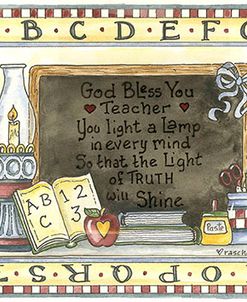 B C D E F G
God Bless You
Teacher
You light a Lamp
in every mind
So that the Light
of TRUTH
will Shine
A B C
1 2 3
Paste
S R Q P O